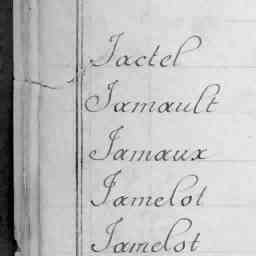 Jactel
Jamault
Jamaux
Jamelot
Jamelot